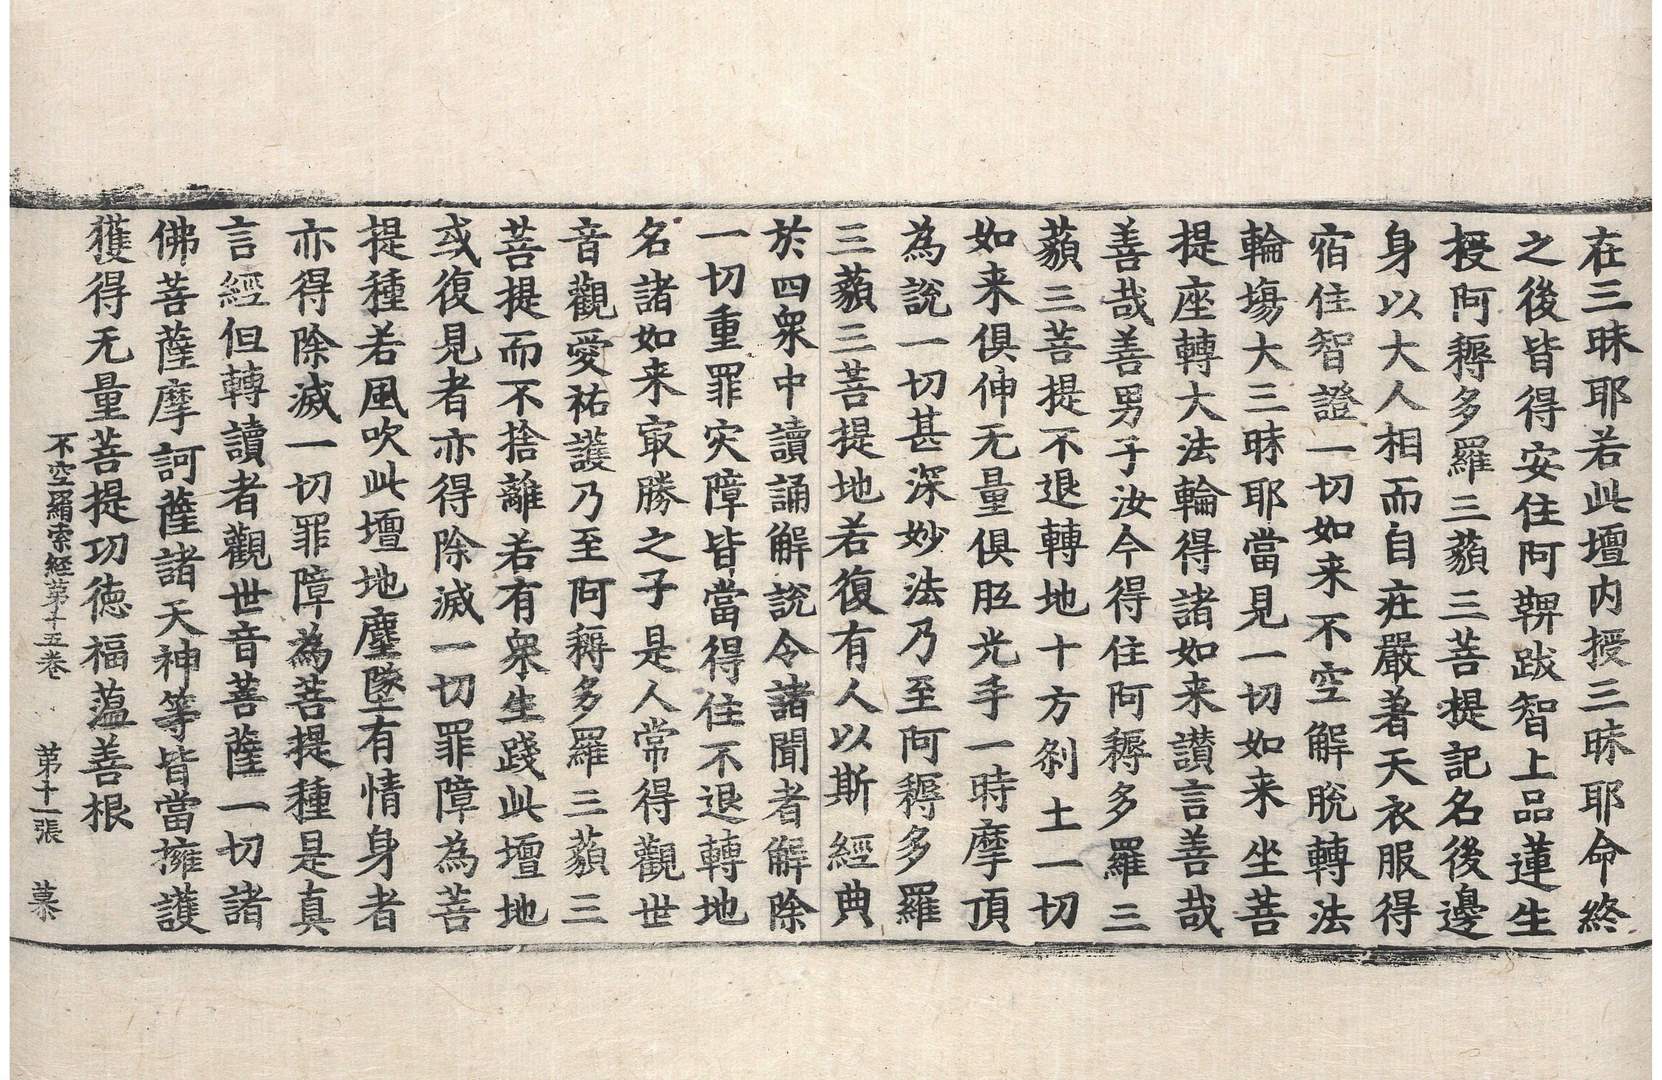 在三昧耶若此壇内授三昧耶命終
之後皆得安住阿鞞跋智上品蓮生
授阿耨多羅三藐三菩提記名後邊
身以大人相而自莊嚴著天衣服得
宿住智證一切如来不空解脫轉法
輪場大三昧耶當見一切如来坐菩
提座轉大法輪得諸如来讃言善哉
善哉善男子汝今得住阿耨多羅三
藐三菩提不退轉地十方剎土一切
如来俱伸无量俱胝光手一時摩頂
為說一切甚深妙法乃至阿耨多羅
三藐三菩提地若復有人以斯經典
於四衆中讀誦解說令諸聞者解除
一切重罪灾障皆當得住不退轉地
名諸如来㝡勝之子是人常得觀世
音觀愛祐護乃至阿耨多羅三藐三
菩提而不捨離若有衆生踐此壇地
或復見者亦得除滅一切罪障為菩
提種若風吹此壇地塵墜有情身者
亦得除滅一切罪障為菩提種是真
言經但轉讀者觀世音菩薩一切諸
佛菩薩摩訶薩諸天神等皆當擁護
獲得无量菩提功德福蘊善根
不空羂索經第十五卷 第十一張 慕